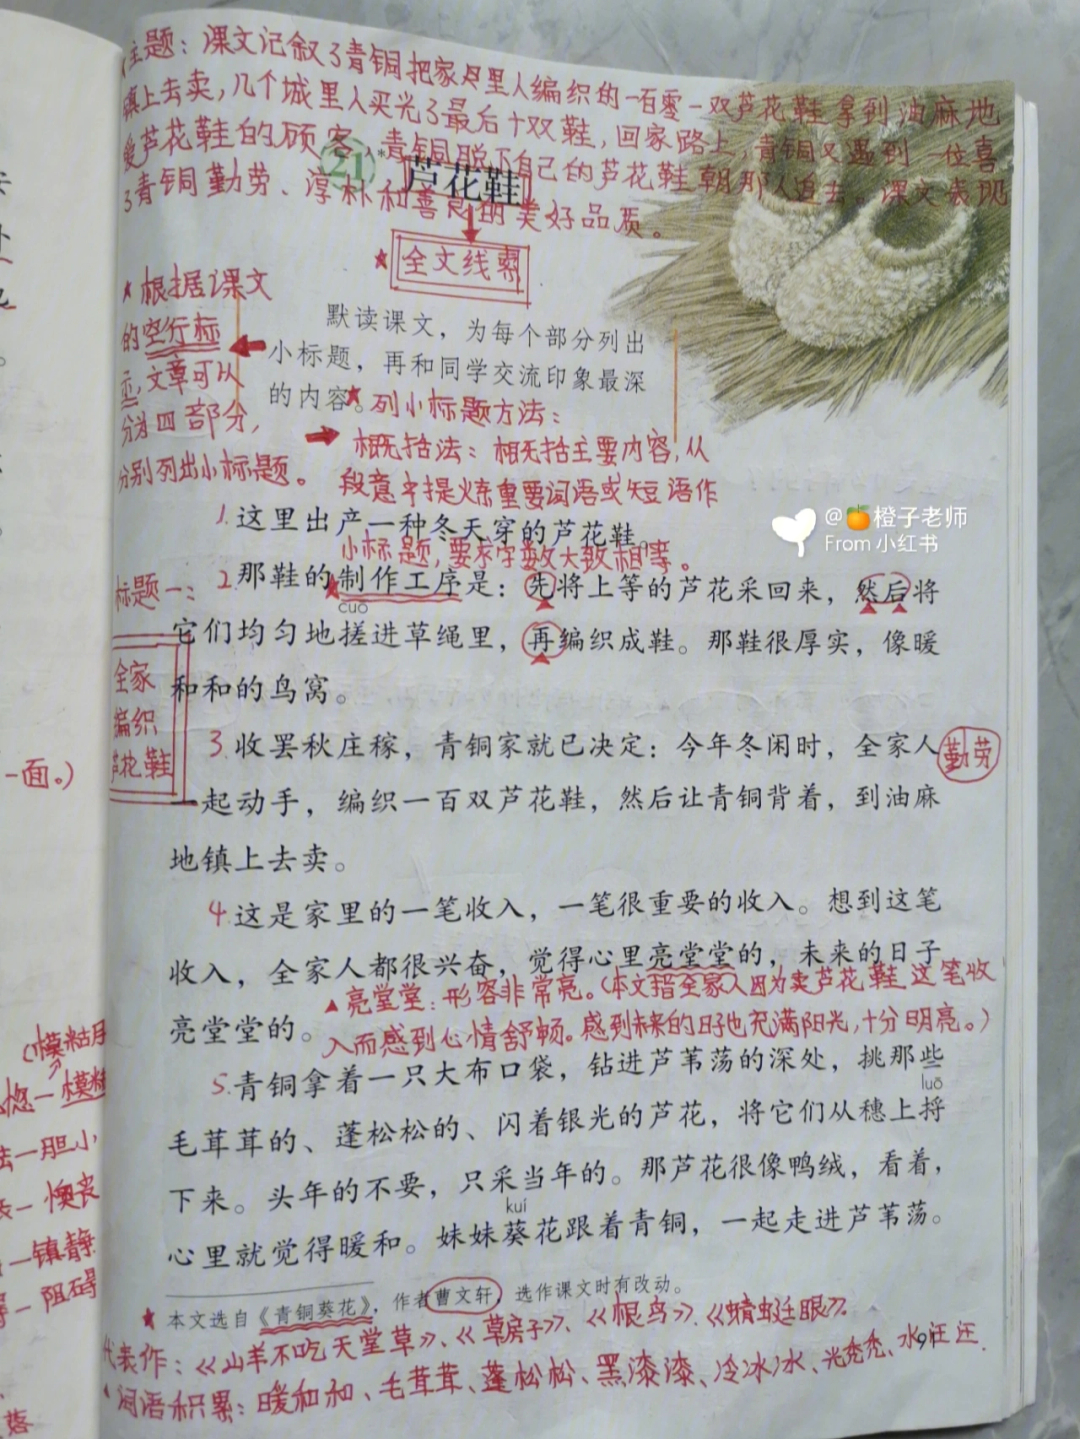 主题：课文记叙了青铜把家里人编织的一百零一双芦花鞋拿到油麻地
镇上去卖，几个城里人买光了最后十双鞋，回家路上，青铜又遇到一位喜
爱芦花鞋的顾客，青铜脱下自己的芦花鞋朝那人追去。课文表现
了青铜勤劳、淳朴和善良的美好品质。
21* 芦花鞋
全文线索
根据课文
的空行标
示，文章可以
分为四部分，
分别列出小标题。
默读课文，为每个部分列出
小标题，再和同学交流印象最深
的内容。
列小标题方法：
概括法：概括主要内容，从
段意中提炼重要词语或短语作
小标题，要求字数大致相等。
1.这里出产一种冬天穿的芦花鞋。
标题一：
全家
编织
芦花鞋
2.那鞋的制作工序是：先将上等的芦花采回来，然后将
cuō
它们均匀地搓进草绳里，再编织成鞋。那鞋很厚实，像暖
和和的鸟窝。
3.收罢秋庄稼，青铜家就已决定：今年冬闲时，全家人
勤劳
一起动手，编织一百双芦花鞋，然后让青铜背着，到油麻
地镇上去卖。
4.这是家里的一笔收入，一笔很重要的收入。想到这笔
收入，全家人都很兴奋，觉得心里亮堂堂的，未来的日子
亮堂堂的。
▲亮堂堂：形容非常亮。（本文指全家人因为卖芦花鞋这笔收
入而感到心情舒畅。感到未来的日子也充满阳光，十分明亮。）
5.青铜拿着一只大布口袋，钻进芦苇荡的深处，挑那些
luō
毛茸茸的、蓬松松的、闪着银光的芦花，将它们从穗上捋
下来。头年的不要，只采当年的。那芦花很像鸭绒，看着，
kuí
心里就觉得暖和。妹妹葵花跟着青铜，一起走进芦苇荡。
本文选自《青铜葵花》，作者曹文轩，选作课文时有改动。
代表作：《山羊不吃天堂草》、《草房子》、《根鸟》、《蜻蜓眼》.
91
词语积累：暖和和、毛茸茸、蓬松松、黑漆漆、冷冰冰、光秃秃、水汪汪.
一面。）
一模糊
一胆小
一懊丧
一镇静
一阻碍
落
@🍊橙子老师
From 小红书